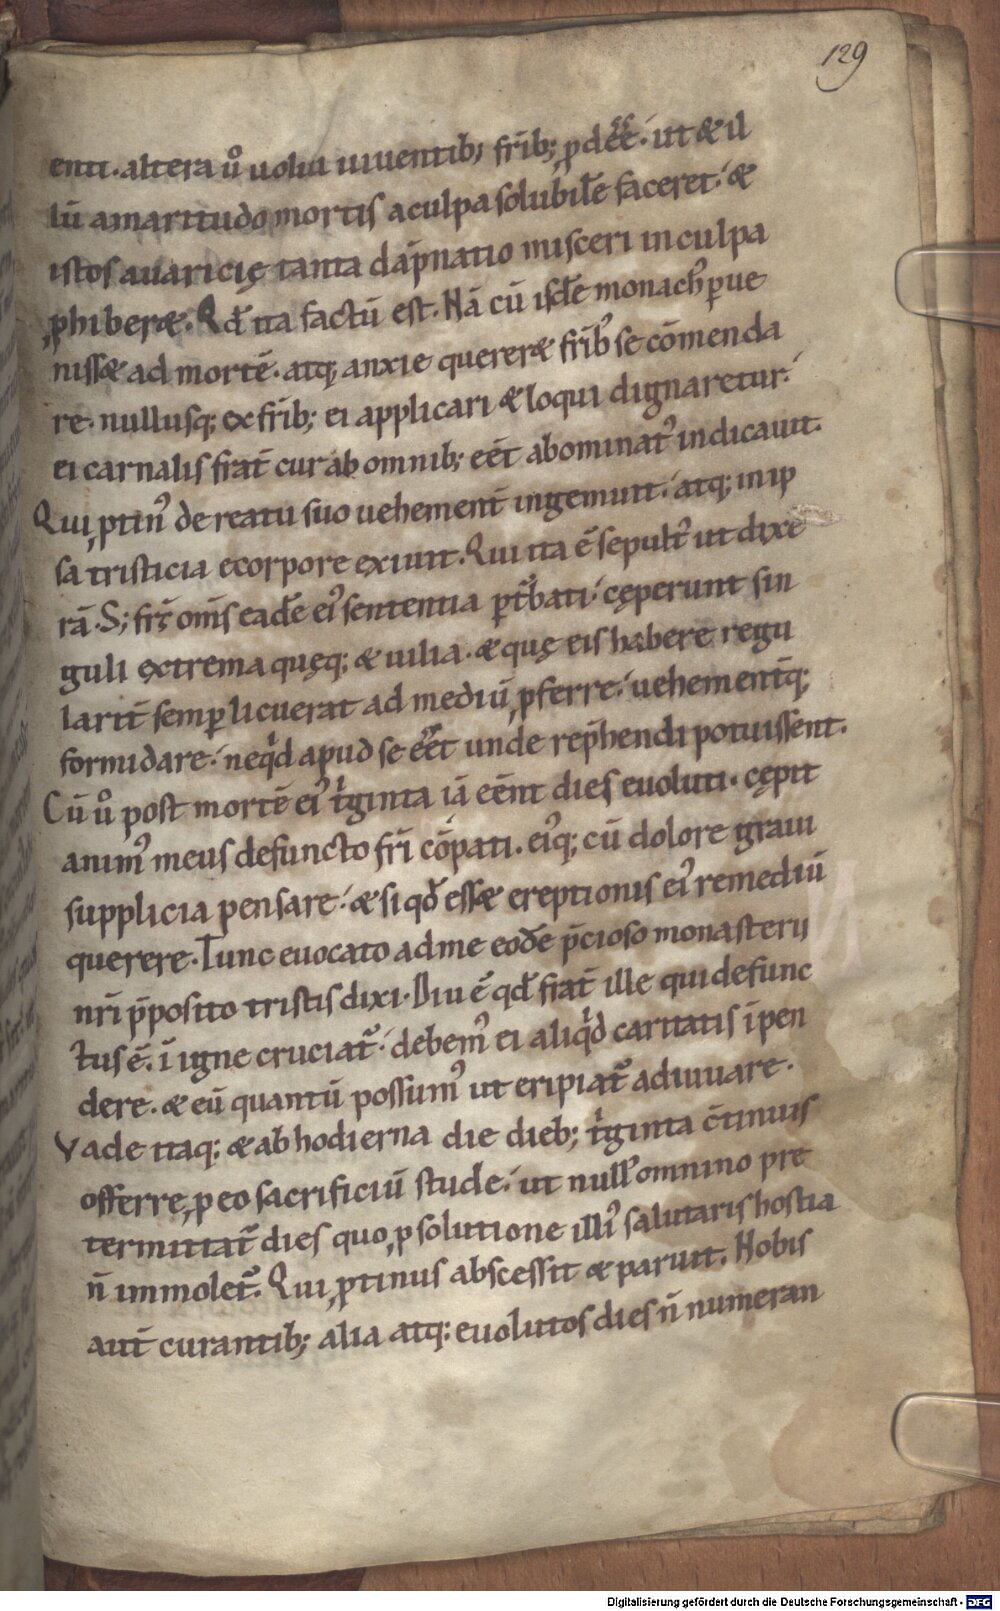 129
enti. altera ů uolui uiuentib; fr̄ib; ꝓdeēē. ut & il
lū amaritudo mortis a culpa solubilē faceret. &
istos auaricię tanta dāpnatio misceri in culpa
ꝓhiber&. Qd̄ ita factū est. Nā cū isdē monach᾽ ꝑue
niss& ad mortē. atq; anxie quereret fr̄ib᾽ se cōmenda
re. nullusq; ex fr̄ib; ei applicari & loqui dignaretur.
ei carnalis frat̄ cur ab omnib; eēt abominat᾽ indicauit.
Qui ꝓtin᾽ de reatu suo uehement̄ ingemuit. atq; in ip
sa tristicia e corpore exiuit. Qui ita ē sepult᾽ ut dixe
rā. S; fr̄s om̄s eadē ei᾽ sententia ꝑt̄bati. cęperunt sin
guli extrema quęq; & uilia. & quę eis habere regu
larit̄ semꝑ licuerat ad mediū ꝓferre. uehement̄q;
formidare. ne qͥd apud se eēt unde rep̄hendi potuissent.
Cū ů post mortē ei᾽ tͥginta iā eēnt dies euoluti. cępit
anim᾽ meus defuncto fr̄i cōpati. ei᾽q; cū dolore graui
supplicia pensare. & si qd̄ ess& ereptionis ei᾽ remediū
querere. Tunc euocato ad me eodē p̄cioso monasterij
nr̄i p̄posito tristis dixi. Diu ē qd̄ frat̄ ille qui defunc
tus ē. ī igne cruciat᷑. debem᾽ ei aliqͥd caritatis īpen
dere. & eū quantū possum᾽ ut eripiat᷑ adiuuare.
Vade itaq; & ab hodierna die dieb; tͥginta c̄tinuis
offerre ꝓ eo sacrificiū stude. ut null᾽ omnino pre
termittat᷑ dies quo ꝓ solutione illi᾽ salutaris hostia
n̄ immolet᷑. Qui ꝓtinus abscessit & paruit. Nobis
aut̄ curantib; alia atq; euolutos dies n̄ numeran
Digitalisierung gefördert durch die Deutsche Forschungsgemeinschaft - DFG